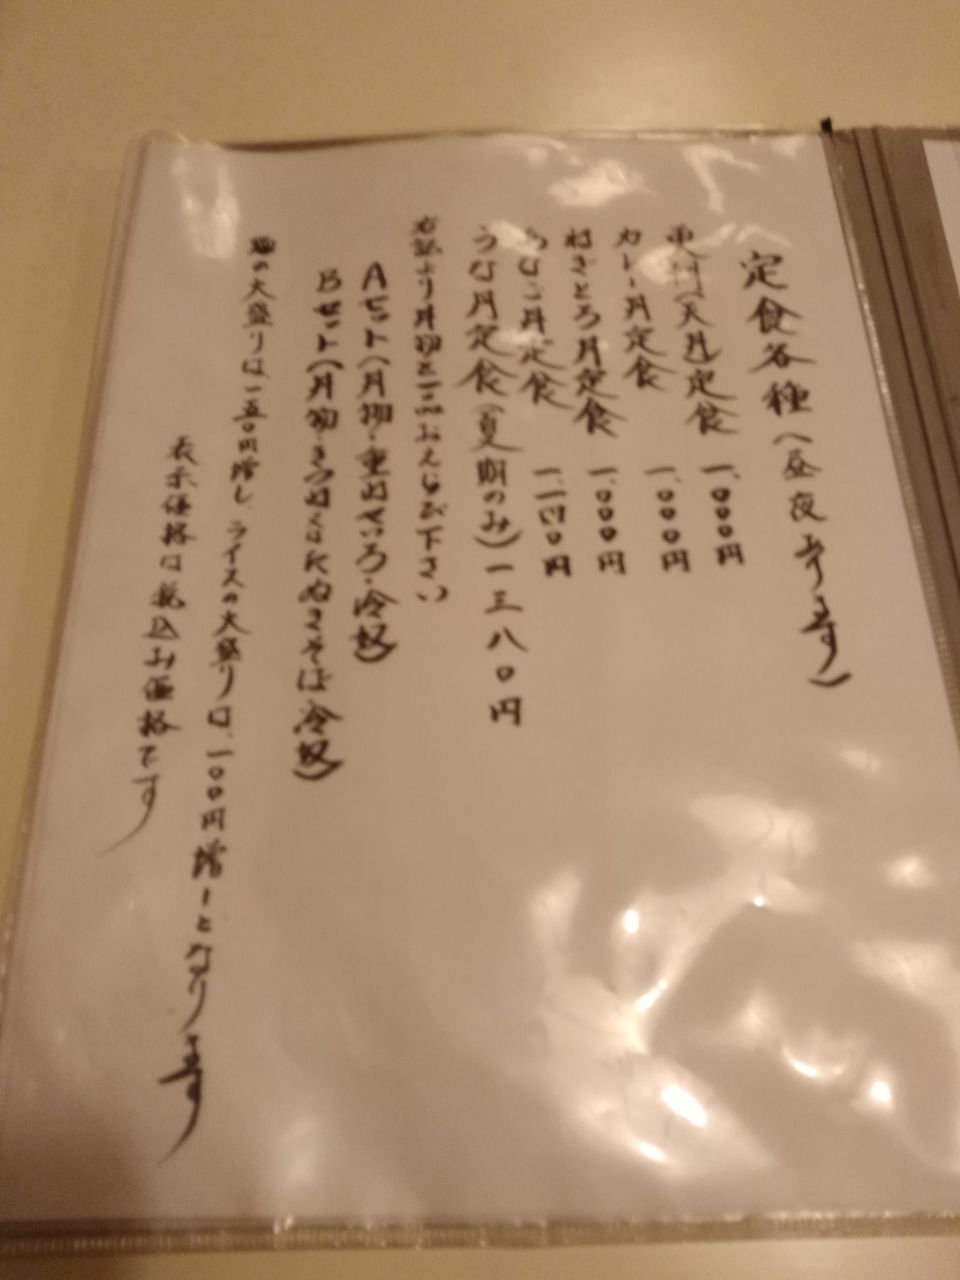 定食各種(昼夜あります)
(天丼)定食 一、〇〇〇円
カレー丼定食 一、〇〇〇円
ねぎとろ丼定食 一、〇〇〇円
丼定食 円
うな丼定食(夏期のみ)一三八〇円
右記より丼物を一品おえらび下さい
Aセット(丼物・重ねせいろ・冷奴)
Bセット(丼物・きつね又はたぬきそば・冷奴)
麺の大盛りは、一五〇円増し、ライスの大盛りは、一〇〇円増しとなります
表示価格は税込み価格です